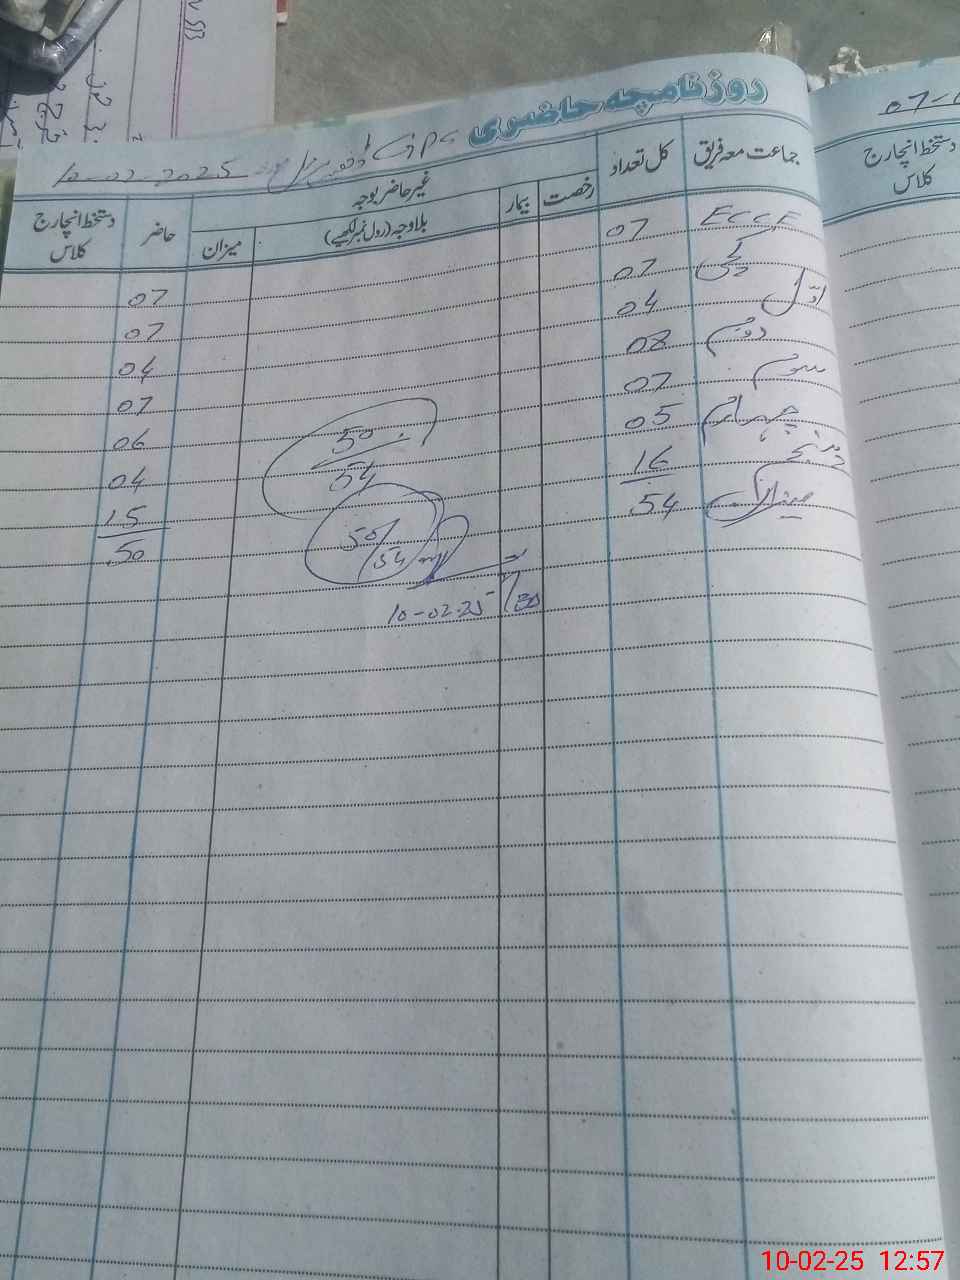 روزنامچہ حاضری
GPS
10-02-2025
جماعت معہ فریق کل تعداد رخصت بیمار غیر حاضر بوجہ بلاوجہ (رول نمبر لکھیے) میزان حاضر دستخط انچارج کلاس
ECCE 07 07
کچی 07 07
اوّل 04 04
دوم 08 07
سوم 07 06
چہارم 05 04
پنجم 16 15
میزان 54 50
50/54
50/54
10-02-25
07-0
دستخط انچارج
کلاس
10-02-25 12:57